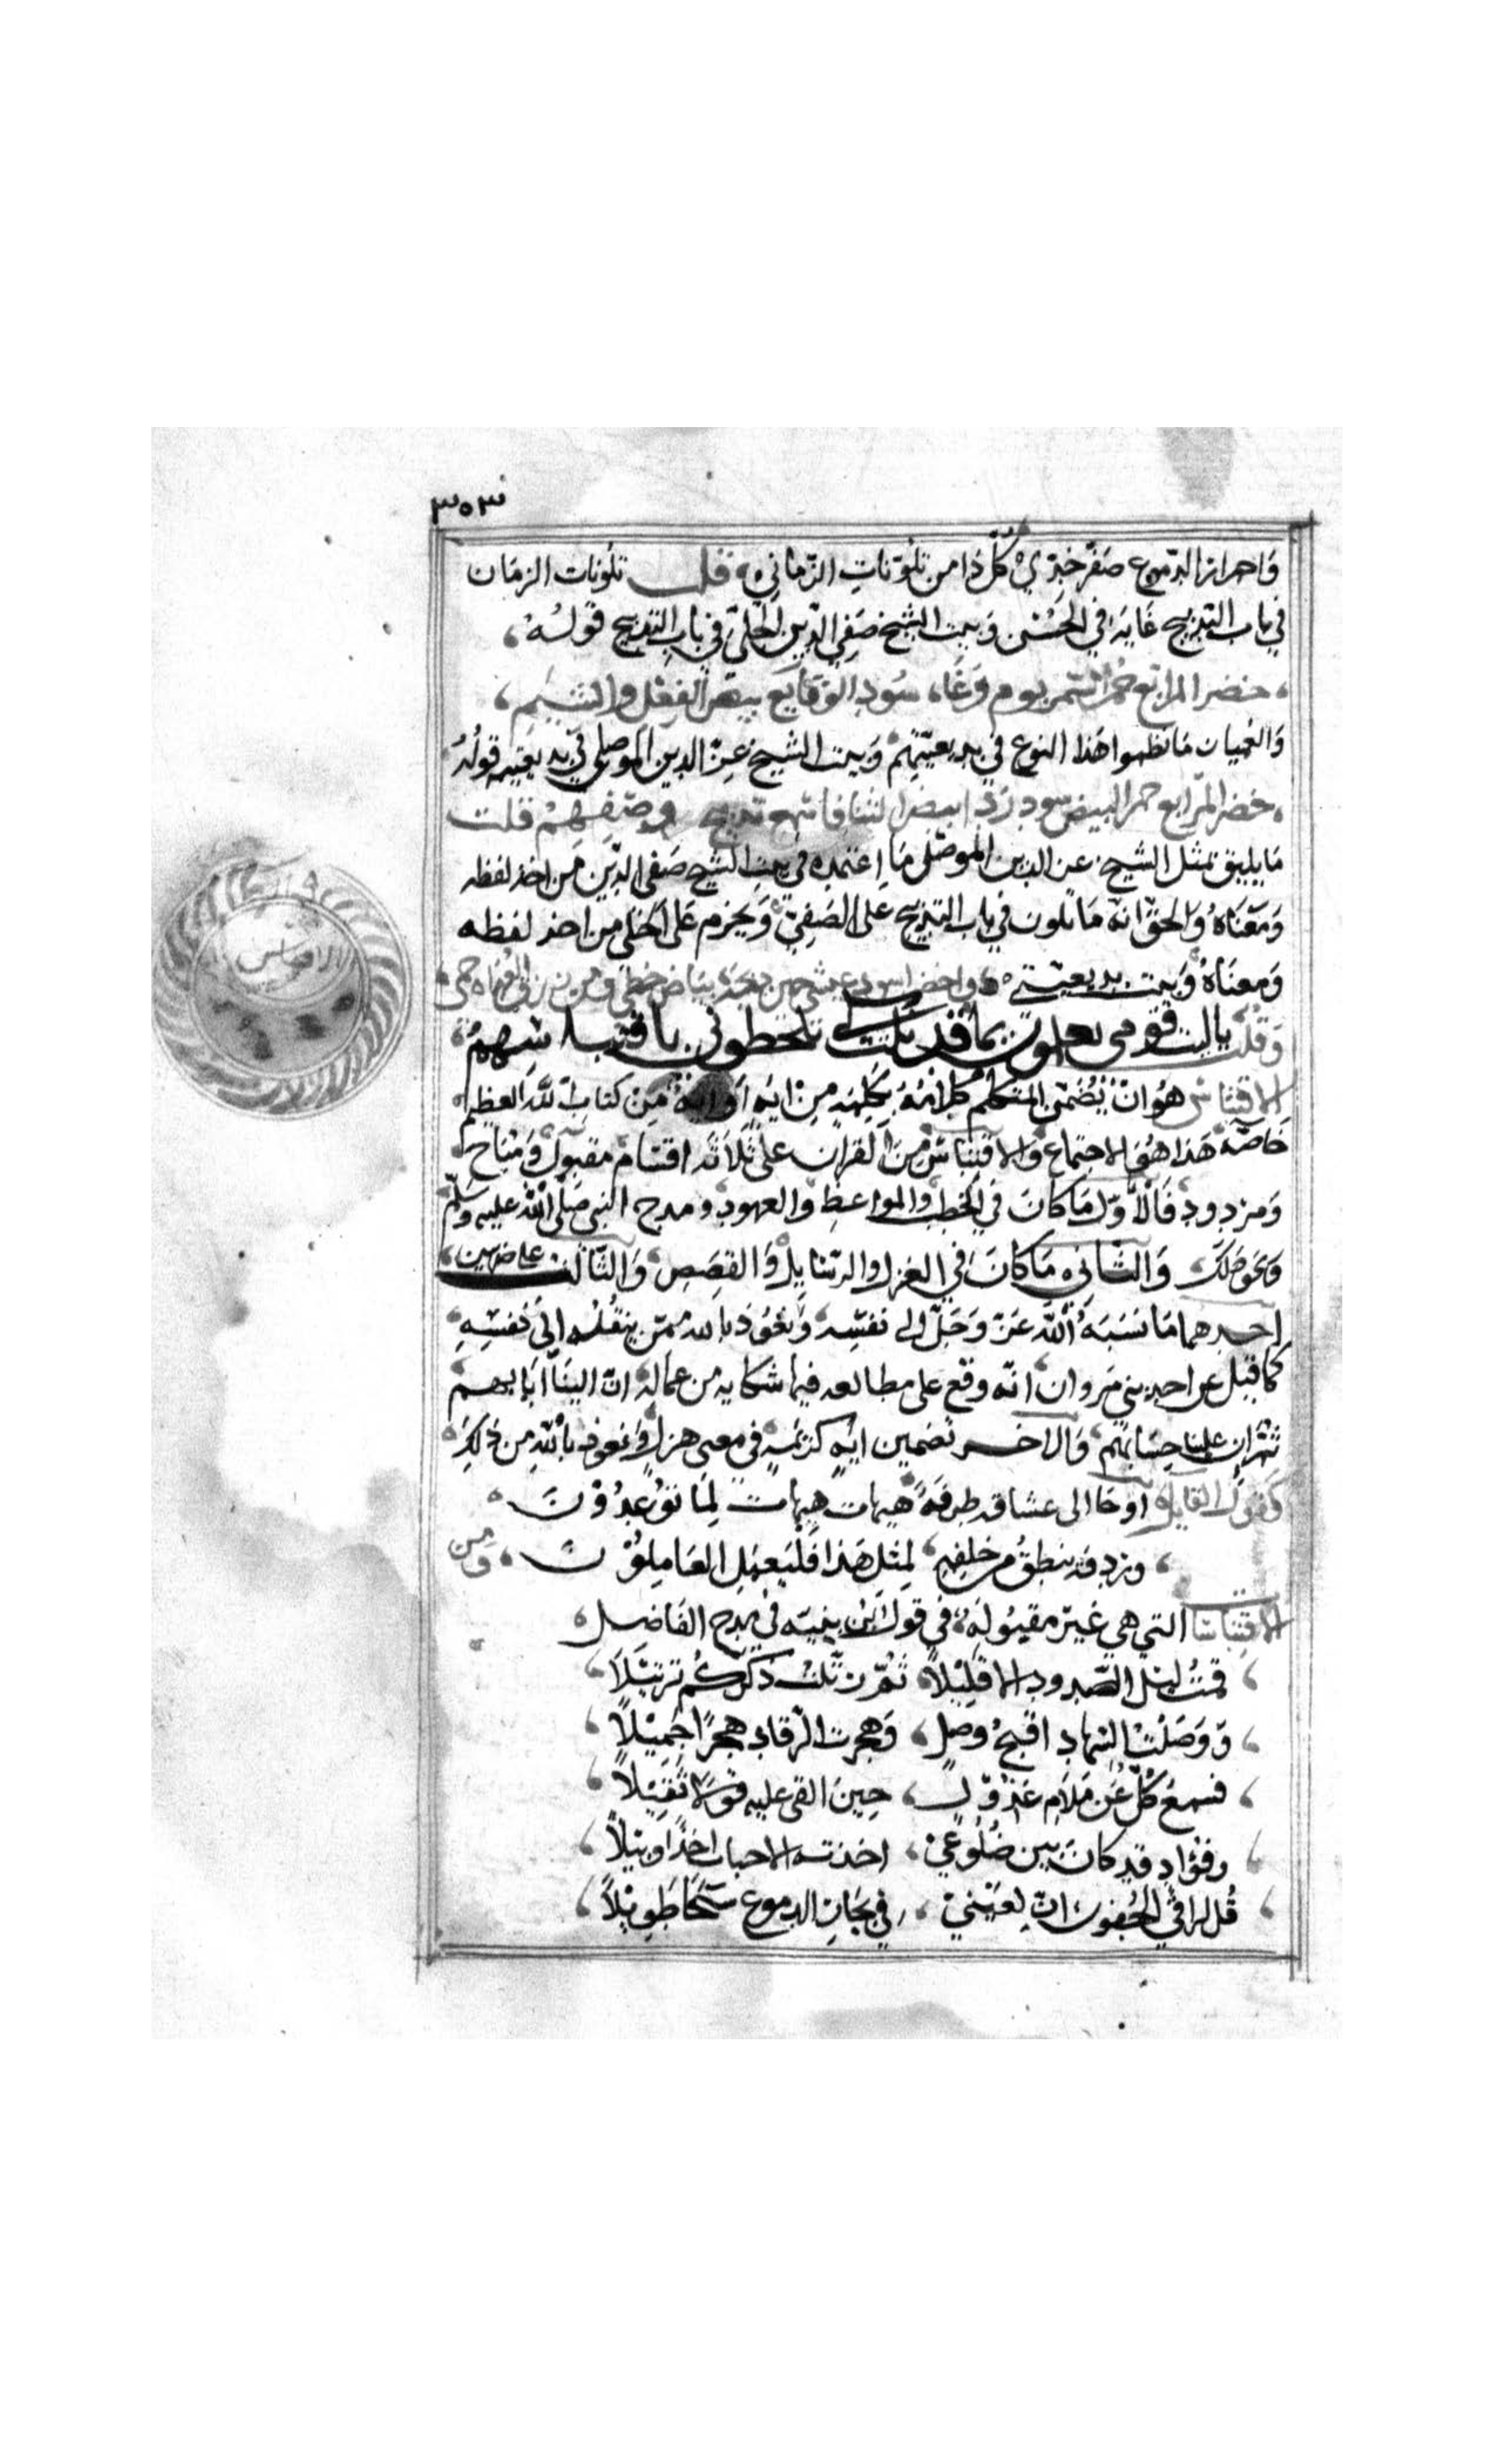 ٣٥٣
وَاحمرار الدّموع صفّر خدّي كُلّ ذا من تلوّنات الزّماني قلت تلونات الزمان
في باب التدبيج غَايَه في الحُسن وَبيت الشيخ صَفي الدّين الحلّي في باب التدبيج قولُهُ
خضر المرابع حُمر السّمر يوم وَغًا سُود الوقايع بيض الفِعْل والشيَم
وَالعميان مَا نظموا هَذا النوع في بديعيّتهم وَبيت الشيخ عزّ الدين الموصلي في بديعيته قولُهُ
خضر المرابع حمر البيض سود رَدًا بيض الثنا فاستمع تدبيج وصفهم قلت
مَا يليق بمثل الشيخ عز الدين الموصّلي مَا اعتمده في بيت الشيخ صَفي الدّين من اخذ لفظه
وَمعَنَاهُ وَالحقّ انّه مَا تلون في باب التدبيج على الصَفِيّ وَيحزم عَلى الحَلّي من اخذ لفظه
وَمعنَاهُ وَبيت بديعيتي واخضر اسود عيشي حين دبّجَهُ بيَاض خطي ومن زرق العُداه حمى
وَقُلت يا ليت قومي يعلمون بما قد نلت كي يلحظوني باقتباسهم
الاقتباس هُو انْ يُضمّن المتكلم كلَامَهُ كلِمَه مِن ايَه اَو ايَةً من كتاب اللّه العظيم
خاصّه هَذا هُوَ الاجتماع وَالاقتباس مِن القران على ثَلاثَه اقسام مقبول وَمبَاح
وَمردود فَالاَوّل مَا كانَ في الخطب والمواعظ والعهود ومدح النبي صَلّى اللّه عليه وسلّم
وَنحو ذلَك وَالثاني مَا كانَ في الغزل والرسايل وَالقصَص وَالثَالث على ضربين
احدهما مَا نسَبَهُ اللّه عَزّ وَجَلّ الى نفسه وَنعُوذ بالله ممّن ينقُلُه الى نفسِهِ
كما قيل عن احد بني مروان انّه وقع على مطالعه فيها شكايه من عماله انّ الينَا ايَابهم
ثمّ ان علينا حسَابهم وَالاخر تضمين ايَهٍ كريمَه في معنى هزل وَنعوذ باللّه من ذلِكَ
كقول القايل اوحَا الى عشاقه طرفَهُ هيهات هيهات لِمَا تُوعدُونَ
وردفه ينطق من خلفِهِ لِمثل هَذا فَليَعمَل العَامِلُونَ وَمن
الاقتباسَات التي هي غير مقبُوله في قول ابن نبيته في مدح الفَاضِل
قمتُ ليل الصّدود الا قليْلاً ثُمّ رتّلتُ ذكركُم ترتيْلَا
وَوَصَلتُ السّهاد اقبحَ وصل وَهجرت الرّقاد هجرًا جَميْلاً
فسمعي كَلّ عَن مَلام عذول حِينَ القى عليه قوْلا ثقيْلاً
وفؤاد قد كانَ بين ضُلُوعي اخذته الاحباب اخذًا وبيْلاً
قُل لراقي الجُفون انّ لعَيْني في بحَار الدموع سبْحَا طَويْلاً
الاقتباس